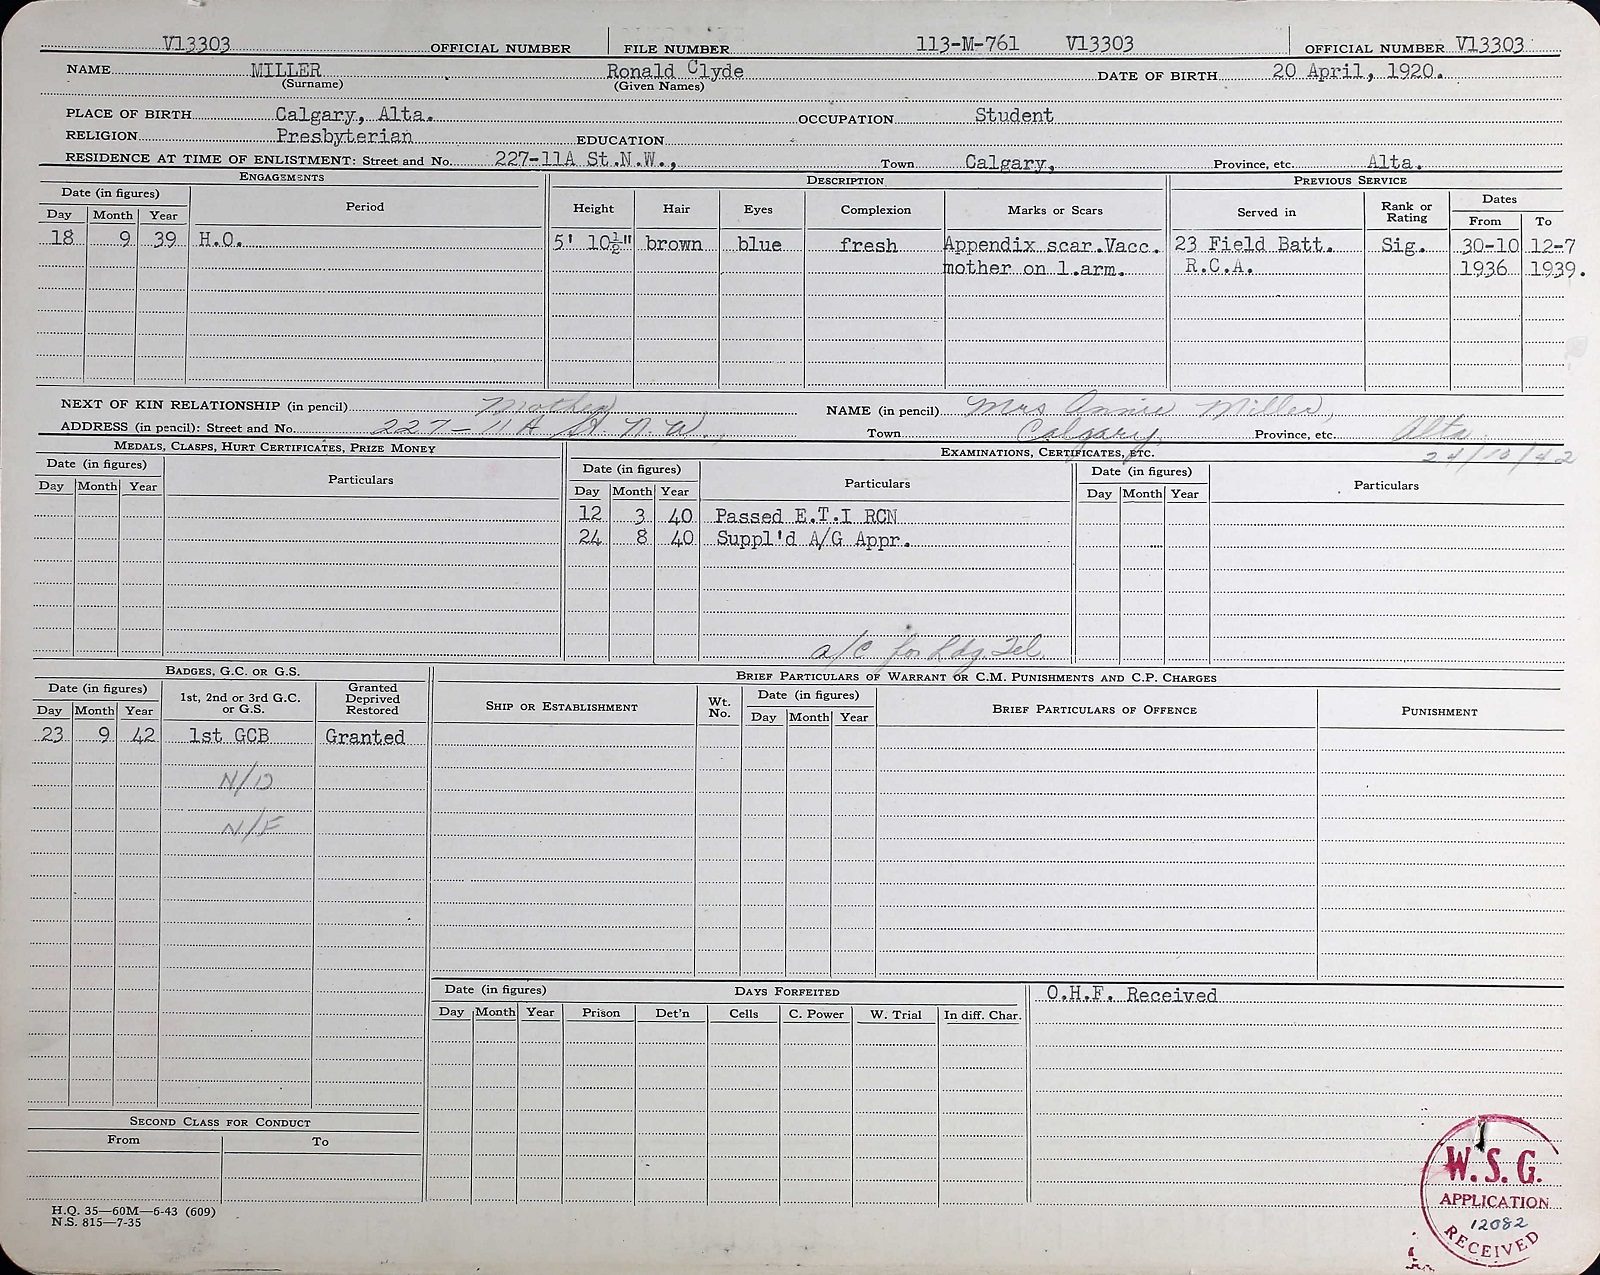 V13303 OFFICIAL NUMBER FILE NUMBER 113-M-761 V13303 OFFICIAL NUMBER V13303
NAME MILLER Ronald Clyde DATE OF BIRTH 20 April, 1920.
(Surname) (Given Names)
PLACE OF BIRTH Calgary, Alta. OCCUPATION Student
RELIGION Presbyterian EDUCATION
RESIDENCE AT TIME OF ENLISTMENT: Street and No. 227-11A St.N.W., Town Calgary, Province, etc. Alta.
ENGAGEMENTS DESCRIPTION PREVIOUS SERVICE
Date (in figures) Period Height Hair Eyes Complexion Marks or Scars Served in Rank or Rating Dates
Day Month Year From To
18 9 39 H.O. 5' 10½" brown blue fresh Appendix scar.Vacc. 23 Field Batt. Sig. 30-10 12-7
mother on l.arm. R.C.A. 1936 1939.
NEXT OF KIN RELATIONSHIP (in pencil) Mother NAME (in pencil) Mrs Annie Miller,
ADDRESS (in pencil): Street and No. 227-11A St. N.W., Town Calgary, Province, etc. Alta.
24/10/42
MEDALS, CLASPS, HURT CERTIFICATES, PRIZE MONEY EXAMINATIONS, CERTIFICATES, ETC.
Date (in figures) Particulars Date (in figures) Particulars Date (in figures) Particulars
Day Month Year Day Month Year Day Month Year
12 3 40 Passed E.T.I RCN
24 8 40 Suppl'd A/G Appr.
a/c for Ldg. Tel.
BADGES, G.C. OR G.S. BRIEF PARTICULARS OF WARRANT OR C.M. PUNISHMENTS AND C.P. CHARGES
Date (in figures) 1st, 2nd or 3rd G.C. or G.S. Granted Deprived Restored SHIP OR ESTABLISHMENT Wt. No. Date (in figures) BRIEF PARTICULARS OF OFFENCE PUNISHMENT
Day Month Year Day Month Year
23 9 42 1st GCB Granted
N/D
N/F
Date (in figures) DAYS FORFEITED O.H.F. Received
Day Month Year Prison Det'n Cells C. Power W. Trial In diff. Char.
SECOND CLASS FOR CONDUCT
From To
W.S.G.
APPLICATION
12082
RECEIVED
H.Q. 35—60M—6-43 (609)
N.S. 815—7-35